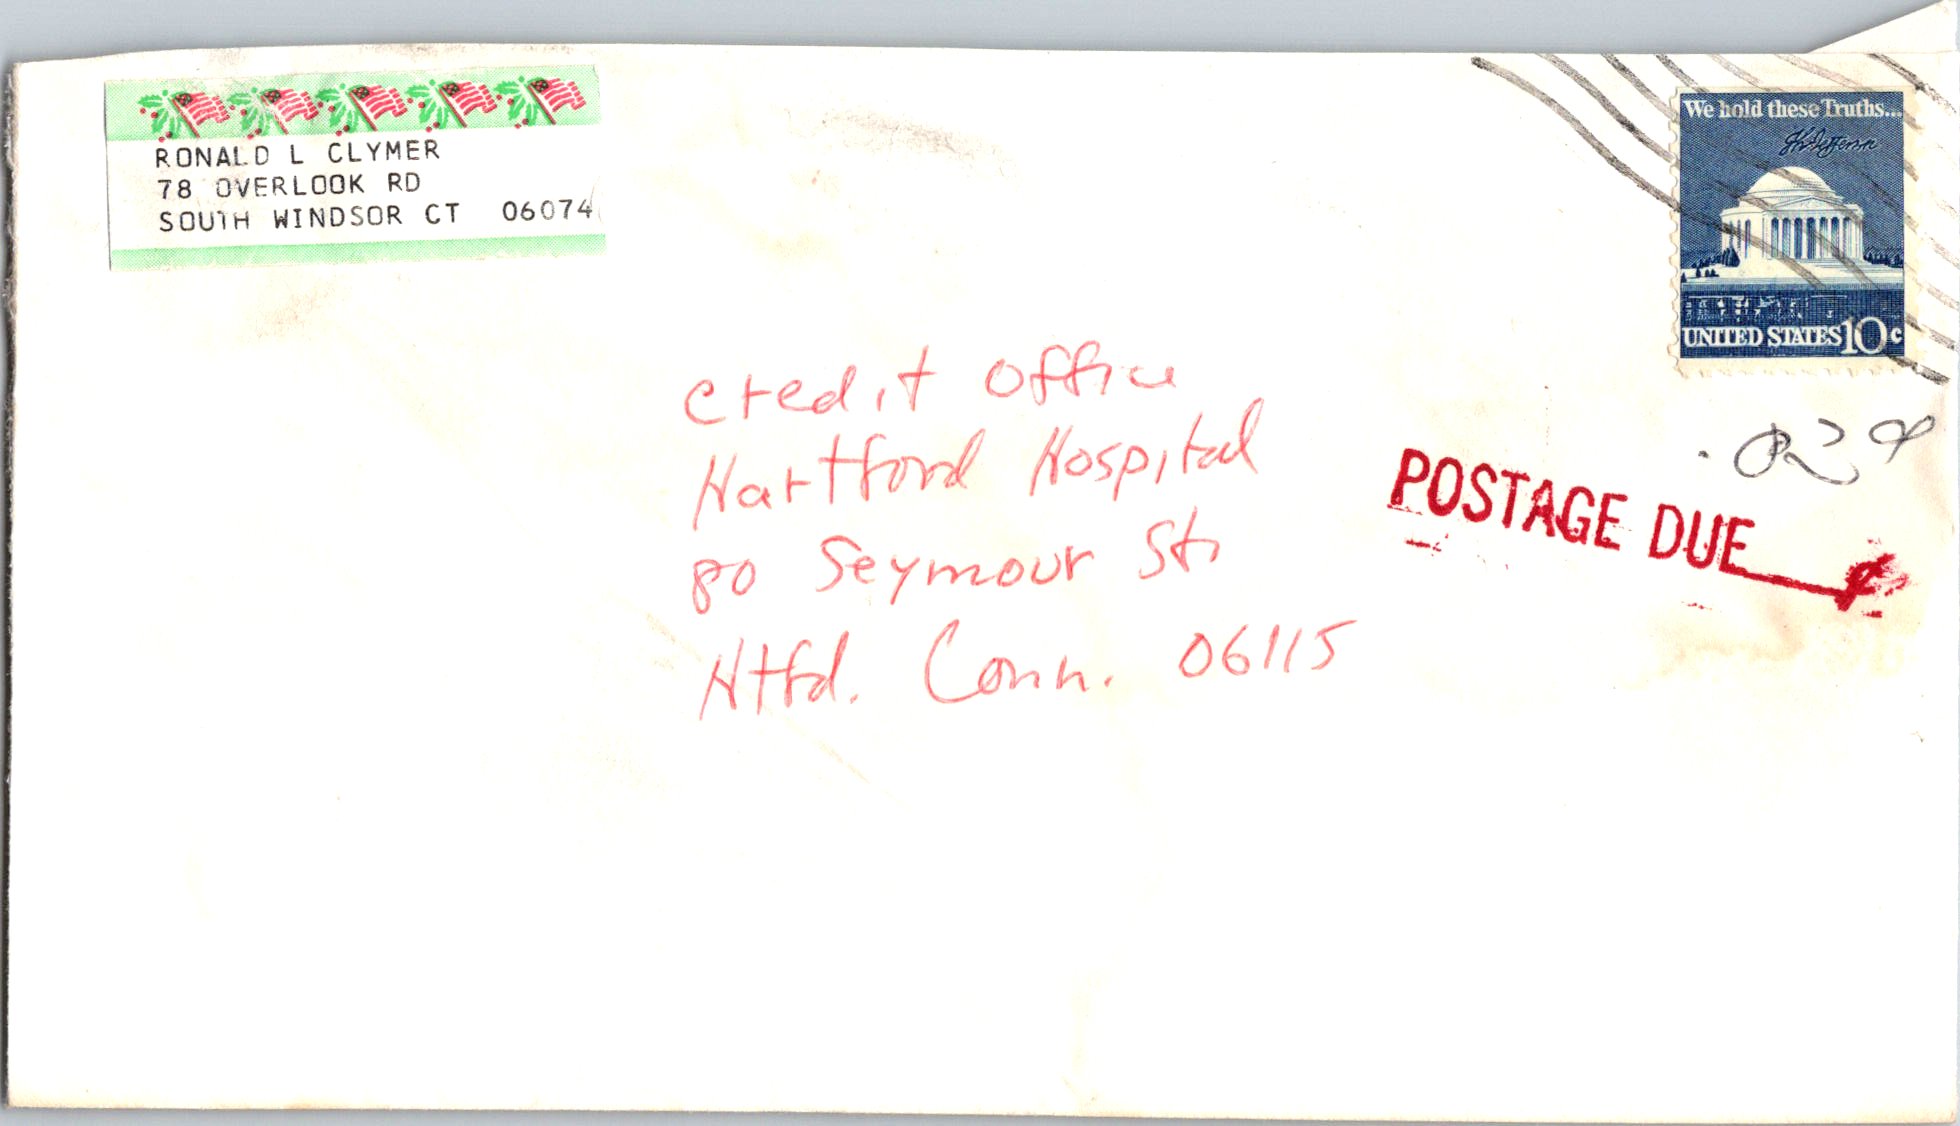 RONALD L CLYMER
78 OVERLOOK RD
SOUTH WINDSOR CT 06074
We hold these Truths...
Th Jefferson
UNITED STATES 10c
POSTAGE DUE ¢
Credit Office
Hartford Hospital
80 Seymour St.
Htfd. Conn. 06115